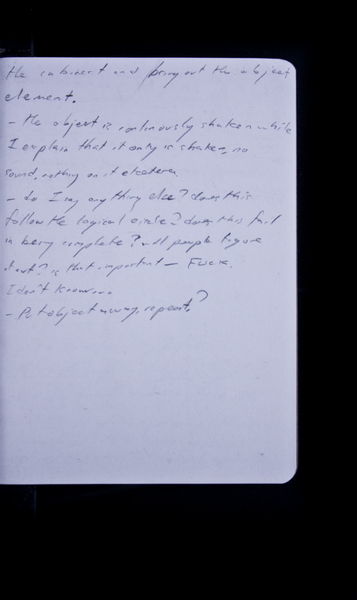 the cabinet and bring out the object
element.
- the object is continuously shaken while
I explain that it only is shaken, no
sound, nothing on it etcetera
- do I say anything else? does this
follow the logical circle? does this fail
in being complete? will people figure
it out? is that important - Fuck.
I don't know...
- Put object away, repeat?